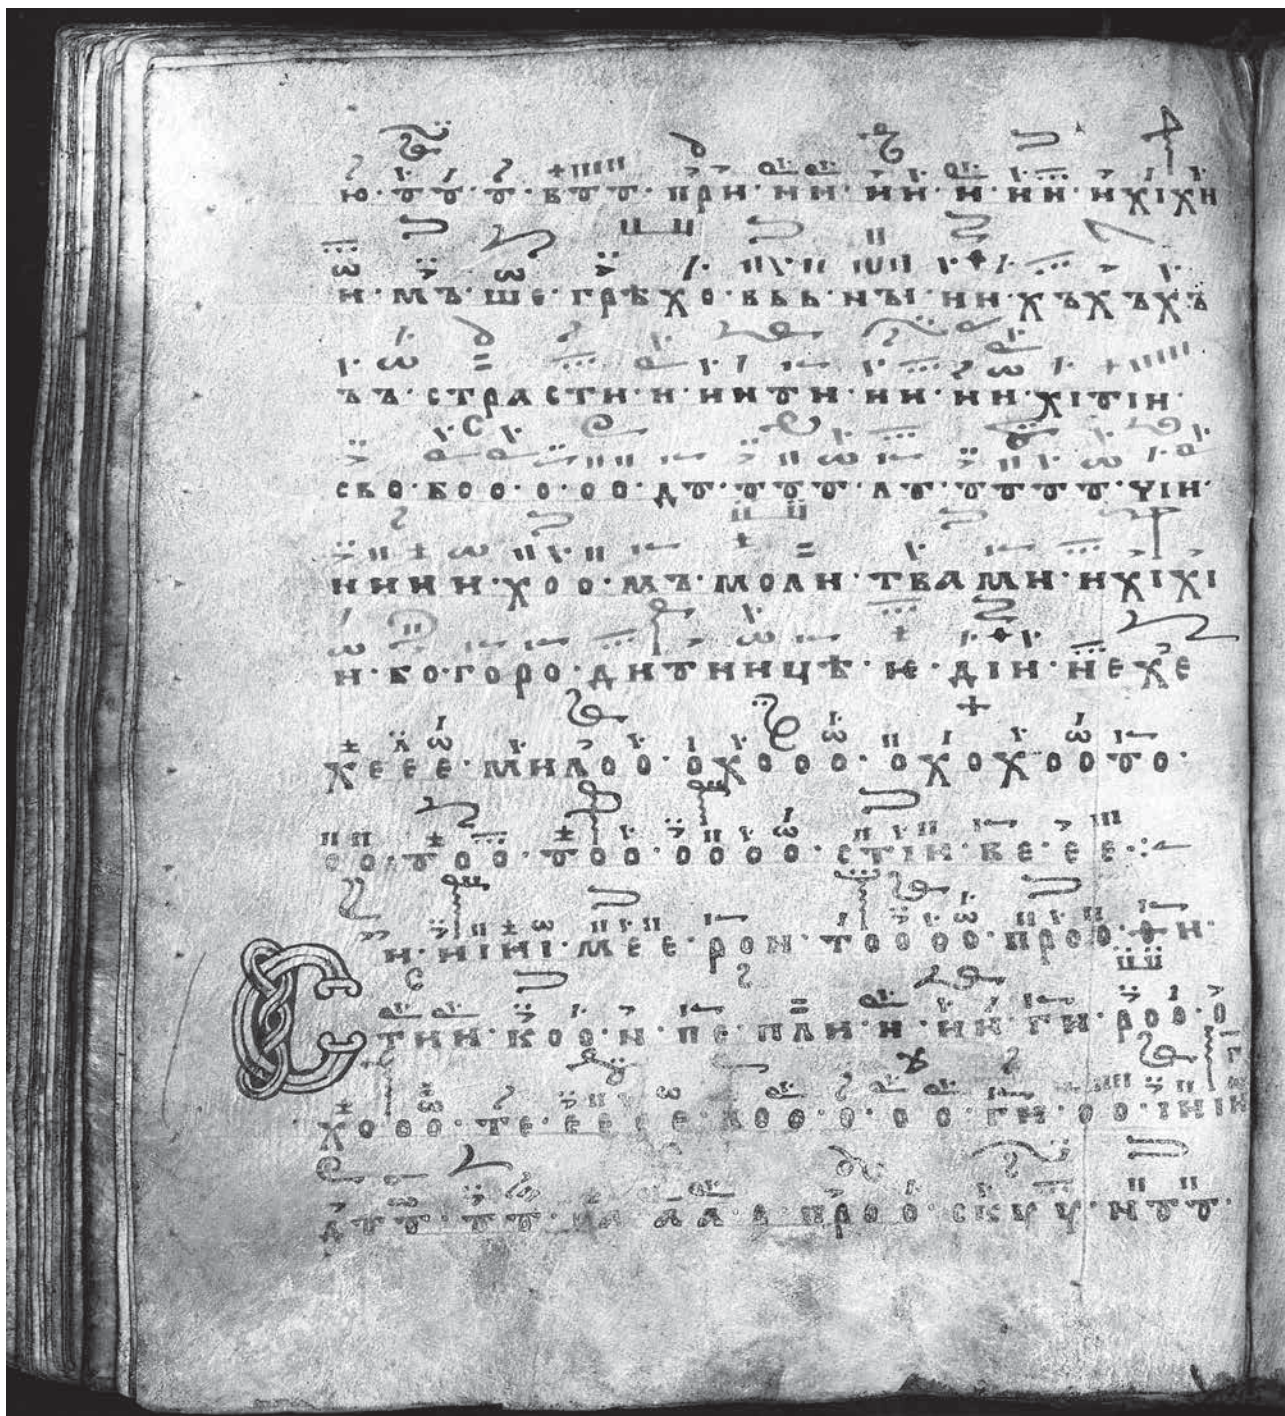 ю·ꙋ·ꙋ·ꙋ·вꙋꙋ·при·ни·ни·и·ни·ихіхи
и·мъ·ше·грѣхо·вьь·нꙑ·ии·хъхъхъ
ъъ·страсти·и·иити·ии·ии·хіꙋіи·
сво·боо·о·оо·дꙋ·ꙋꙋꙋ·лꙋ·ꙋꙋꙋꙋ·чіи·
ииии·хоо·мъ·моли·твами·ихіхі
и·бо·горо·дитиицѣ·ѥ·діи·нехе
хеее·милоо·охооо·охохоото·
оо·тоо·тоо·оооо·стіи·ве·ее·:
и·ніні·мее·рон·тоооо·проо·фи·
Стии·коо·и·пе·пли·и·ии·ги·роо·о
хооо·те·еееее·кооо·о·оо·ги·оо·ініи
дꙋꙋ·ꙋꙋ· проо·скуу·нꙋꙋ·